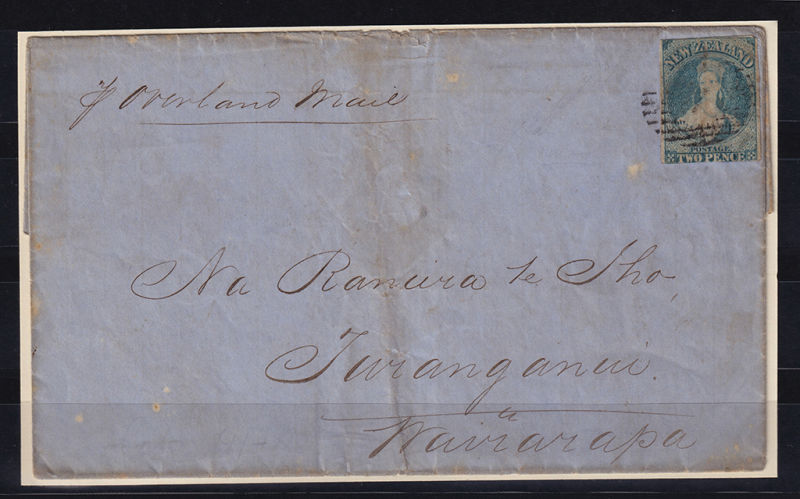 NEW ZEALAND
POSTAGE
TWO PENCE
p Overland Mail
Na Raniera te Iho,
Turanganui
Wairarapa